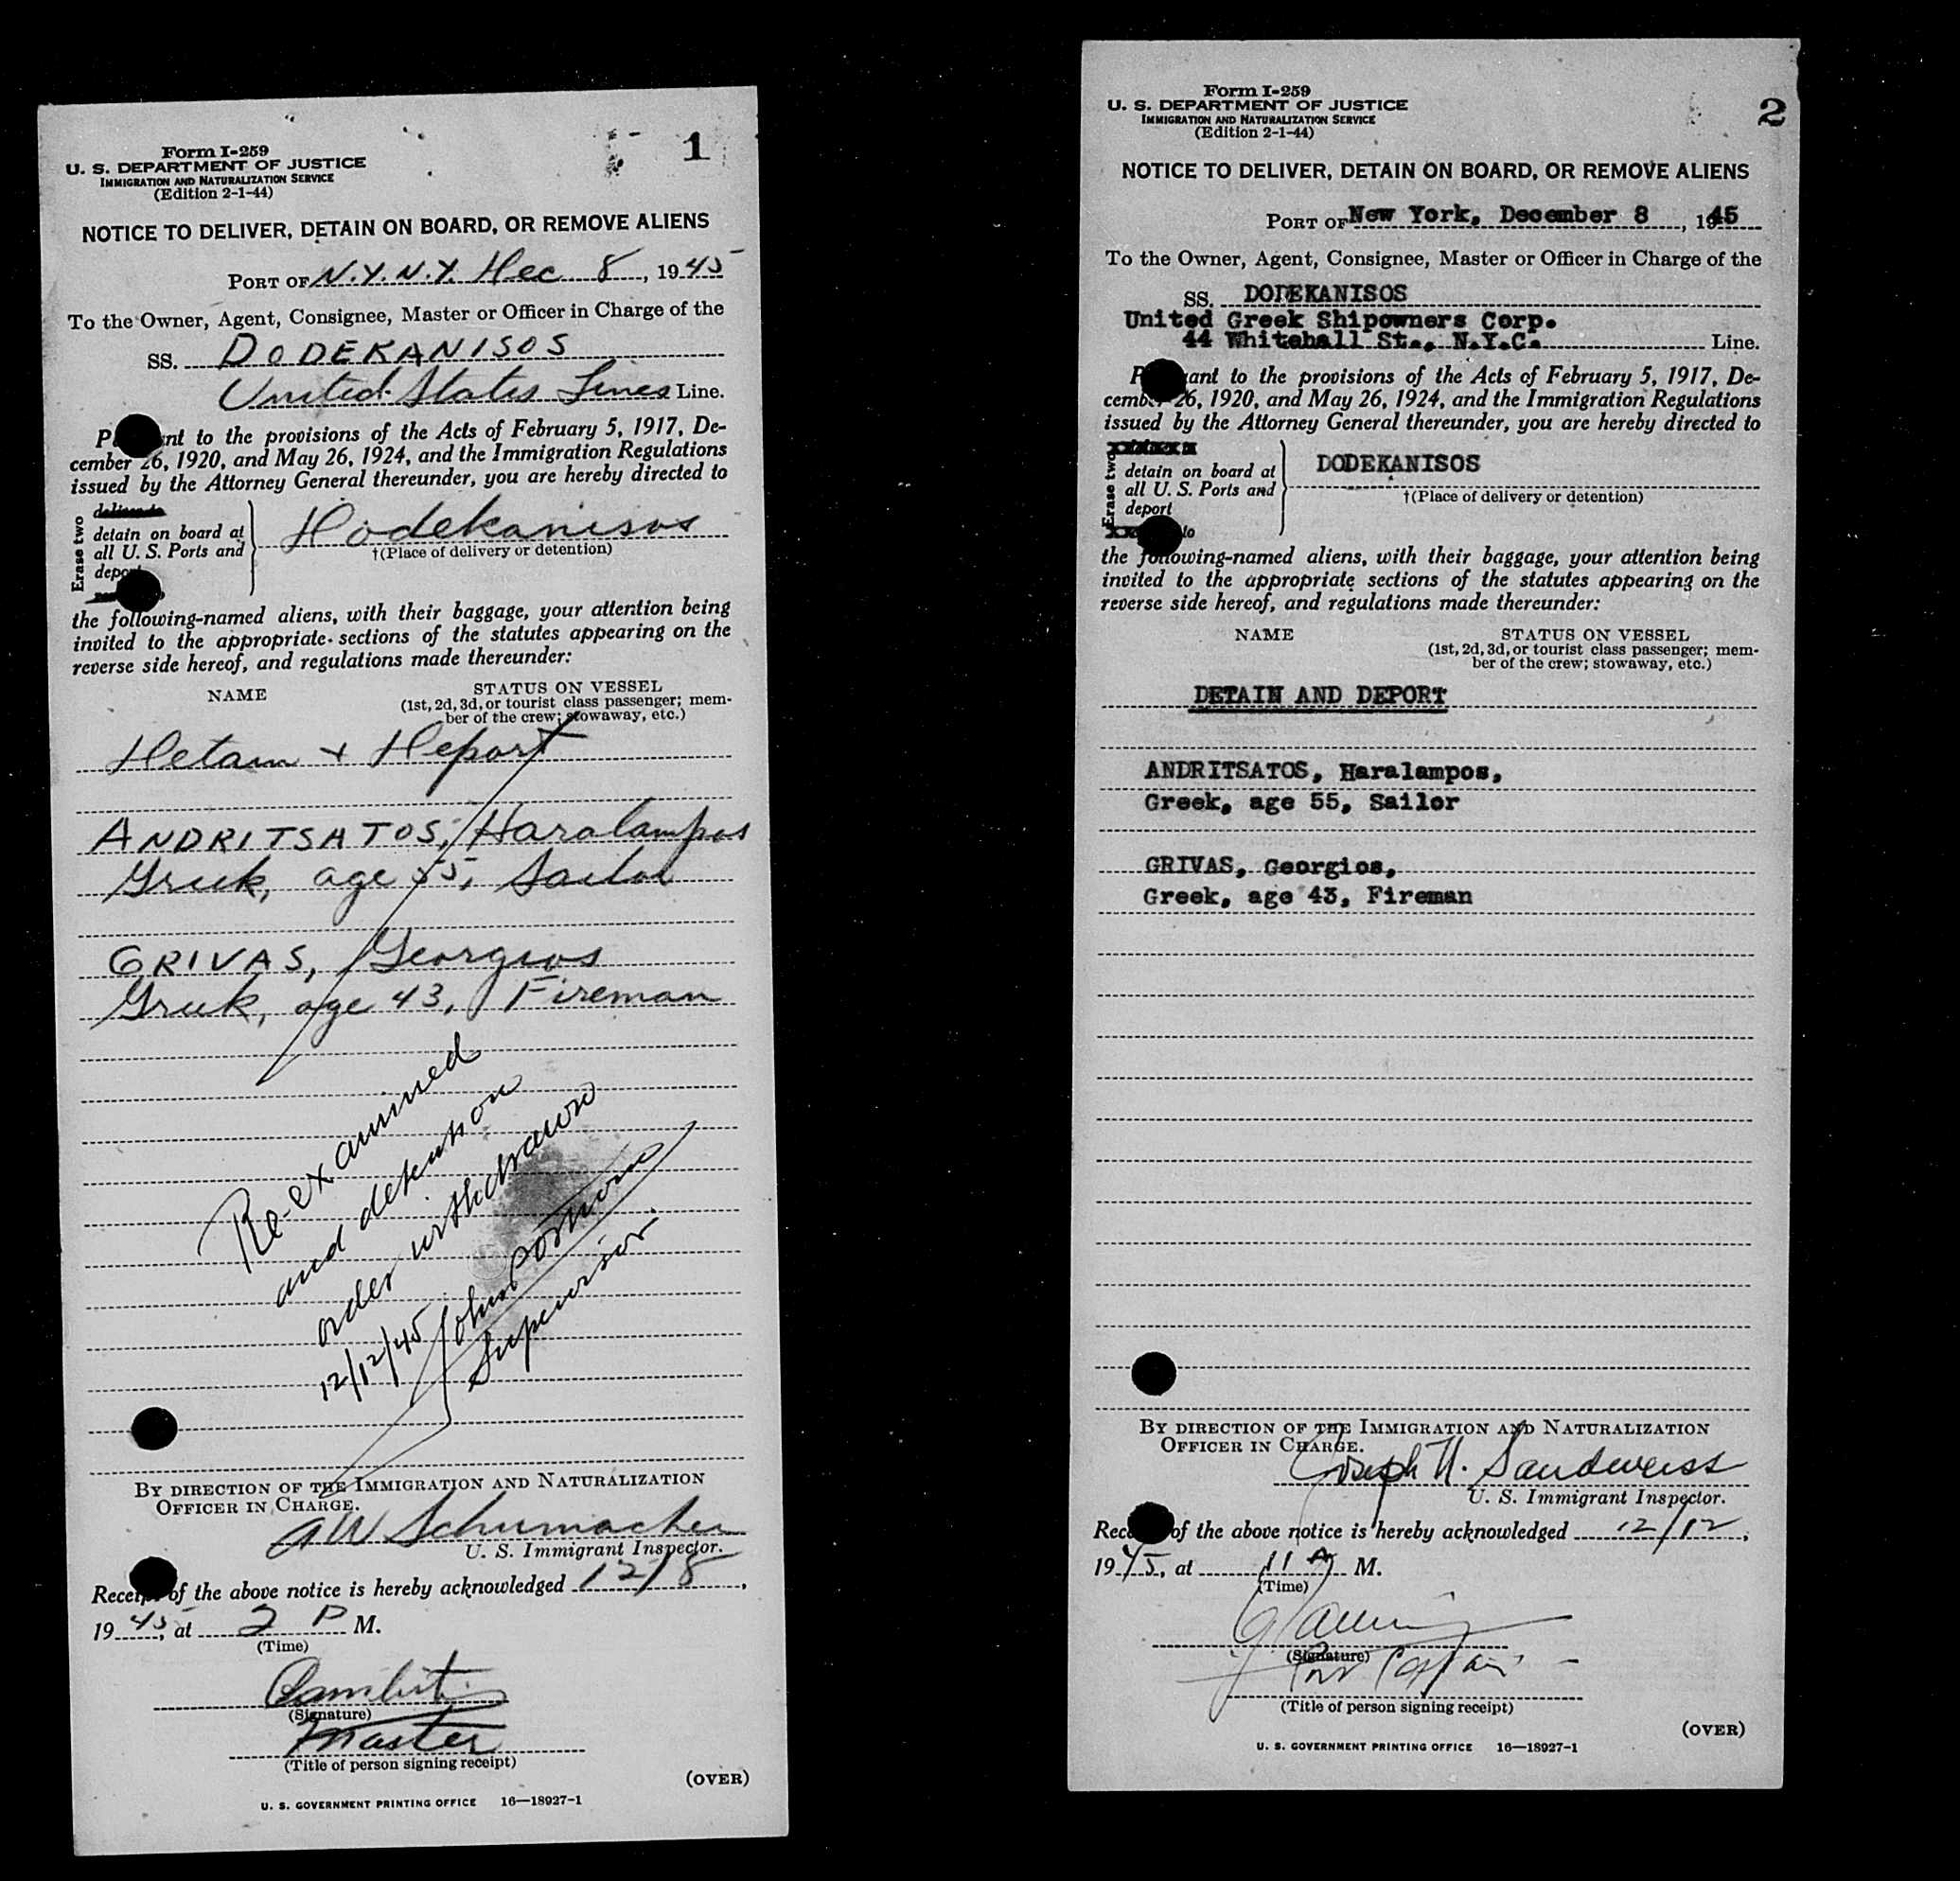 1
Form I-259
U. S. DEPARTMENT OF JUSTICE
IMMIGRATION AND NATURALIZATION SERVICE
(Edition 2-1-44)
NOTICE TO DELIVER, DETAIN ON BOARD, OR REMOVE ALIENS
PORT OF N.Y. N.Y. Dec 8, 1945
To the Owner, Agent, Consignee, Master or Officer in Charge of the
SS. DODEKANISOS
United States Lines Line.
nt to the provisions of the Acts of February 5, 1917, De-
cember 26, 1920, and May 26, 1924, and the Immigration Regulations
issued by the Attorney General thereunder, you are hereby directed to
Erase two
deliver to
detain on board at
all U. S. Ports and
deport
Dodekanisos
†(Place of delivery or detention)
the following-named aliens, with their baggage, your attention being
invited to the appropriate sections of the statutes appearing on the
reverse side hereof, and regulations made thereunder:
NAME STATUS ON VESSEL
(1st, 2d, 3d, or tourist class passenger; mem-
ber of the crew; stowaway, etc.)
Detain + Deport
ANDRITSATOS, Haralampos
Greek, age 55, Sailor
GRIVAS, Georgios
Greek, age 43, Fireman
Re-examined
and detention
order withdrawn
12/12/45 John
Supervisor.
BY DIRECTION OF THE IMMIGRATION AND NATURALIZATION
OFFICER IN CHARGE.
AW Schumacher
U. S. Immigrant Inspector.
Receipt of the above notice is hereby acknowledged 12/8,
1945, at 2 P M.
(Time)
(Signature)
Master
(Title of person signing receipt)
(OVER)
U. S. GOVERNMENT PRINTING OFFICE 16—18927-1
2
Form I-259
U. S. DEPARTMENT OF JUSTICE
IMMIGRATION AND NATURALIZATION SERVICE
(Edition 2-1-44)
NOTICE TO DELIVER, DETAIN ON BOARD, OR REMOVE ALIENS
PORT OF New York, December 8, 1945
To the Owner, Agent, Consignee, Master or Officer in Charge of the
SS. DODEKANISOS
United Greek Shipowners Corp.
44 Whitehall St., N.Y.C. Line.
ant to the provisions of the Acts of February 5, 1917, De-
cember 26, 1920, and May 26, 1924, and the Immigration Regulations
issued by the Attorney General thereunder, you are hereby directed to
Erase two
detain on board at
all U. S. Ports and
deport
to
DODEKANISOS
†(Place of delivery or detention)
the following-named aliens, with their baggage, your attention being
invited to the appropriate sections of the statutes appearing on the
reverse side hereof, and regulations made thereunder:
NAME STATUS ON VESSEL
(1st, 2d, 3d, or tourist class passenger; mem-
ber of the crew; stowaway, etc.)
DETAIN AND DEPORT
ANDRITSATOS, Haralampos,
Greek, age 55, Sailor
GRIVAS, Georgios,
Greek, age 43, Fireman
BY DIRECTION OF THE IMMIGRATION AND NATURALIZATION
OFFICER IN CHARGE.
Joseph N. Sandweiss
U. S. Immigrant Inspector.
Rec of the above notice is hereby acknowledged 12/12,
1945, at 11 A M.
(Time)
(Signature)
Port Captain
(Title of person signing receipt)
(OVER)
U. S. GOVERNMENT PRINTING OFFICE 16—18927-1